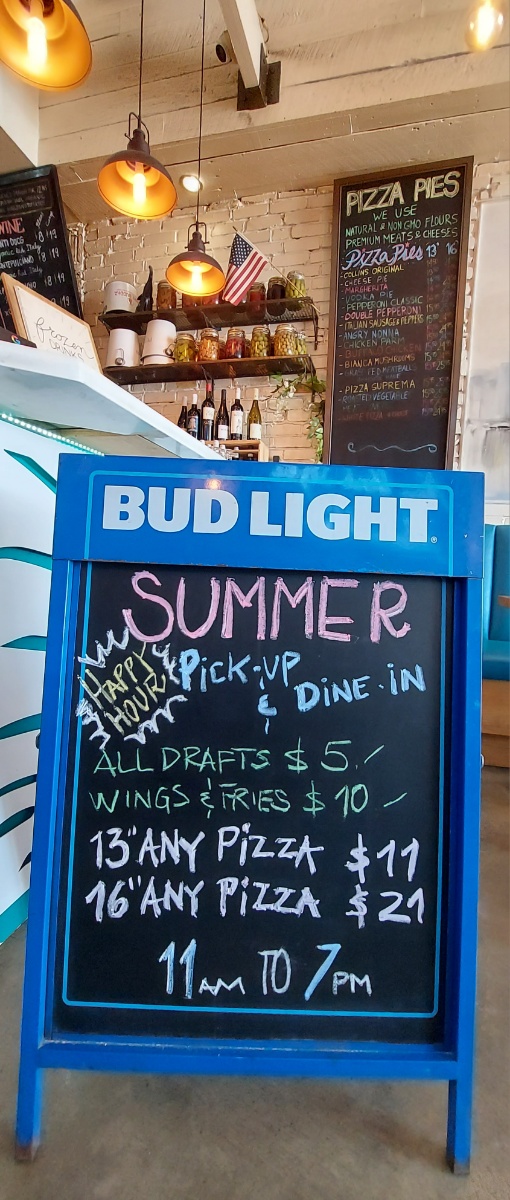 WINE
frozen
DRINKS
PIZZA PIES
WE USE
NATURAL & NON GMO FLOURS
PREMIUM MEATS & CHEESES
Pizza Pies 13" 16"
COLLINS ORIGINAL
CHEESE PIE
MARGHERITA
VODKA PIE
PEPPERONI CLASSIC
DOUBLE PEPPERONI
ITALIAN SAUSAGE & PEPPERS
ANGRY NONNA
CHICKEN PARM
BIANCA MUSHROOMS
MEATBALL
PIZZA SUPREMA
ROASTED VEGETABLE
BUD LIGHT®
SUMMER
HAPPY HOUR
PiCK-UP & DiNE-iN
ALL DRAFTS $5.-
WINGS & FRIES $10-
13" ANY PiZZA $11
16" ANY PiZZA $21
11AM TO 7PM